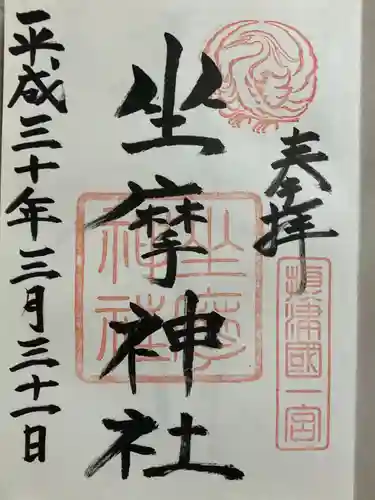 奉拝
摂津國一宮
坐摩神社
坐摩
神社
平成三十年三月三十一日